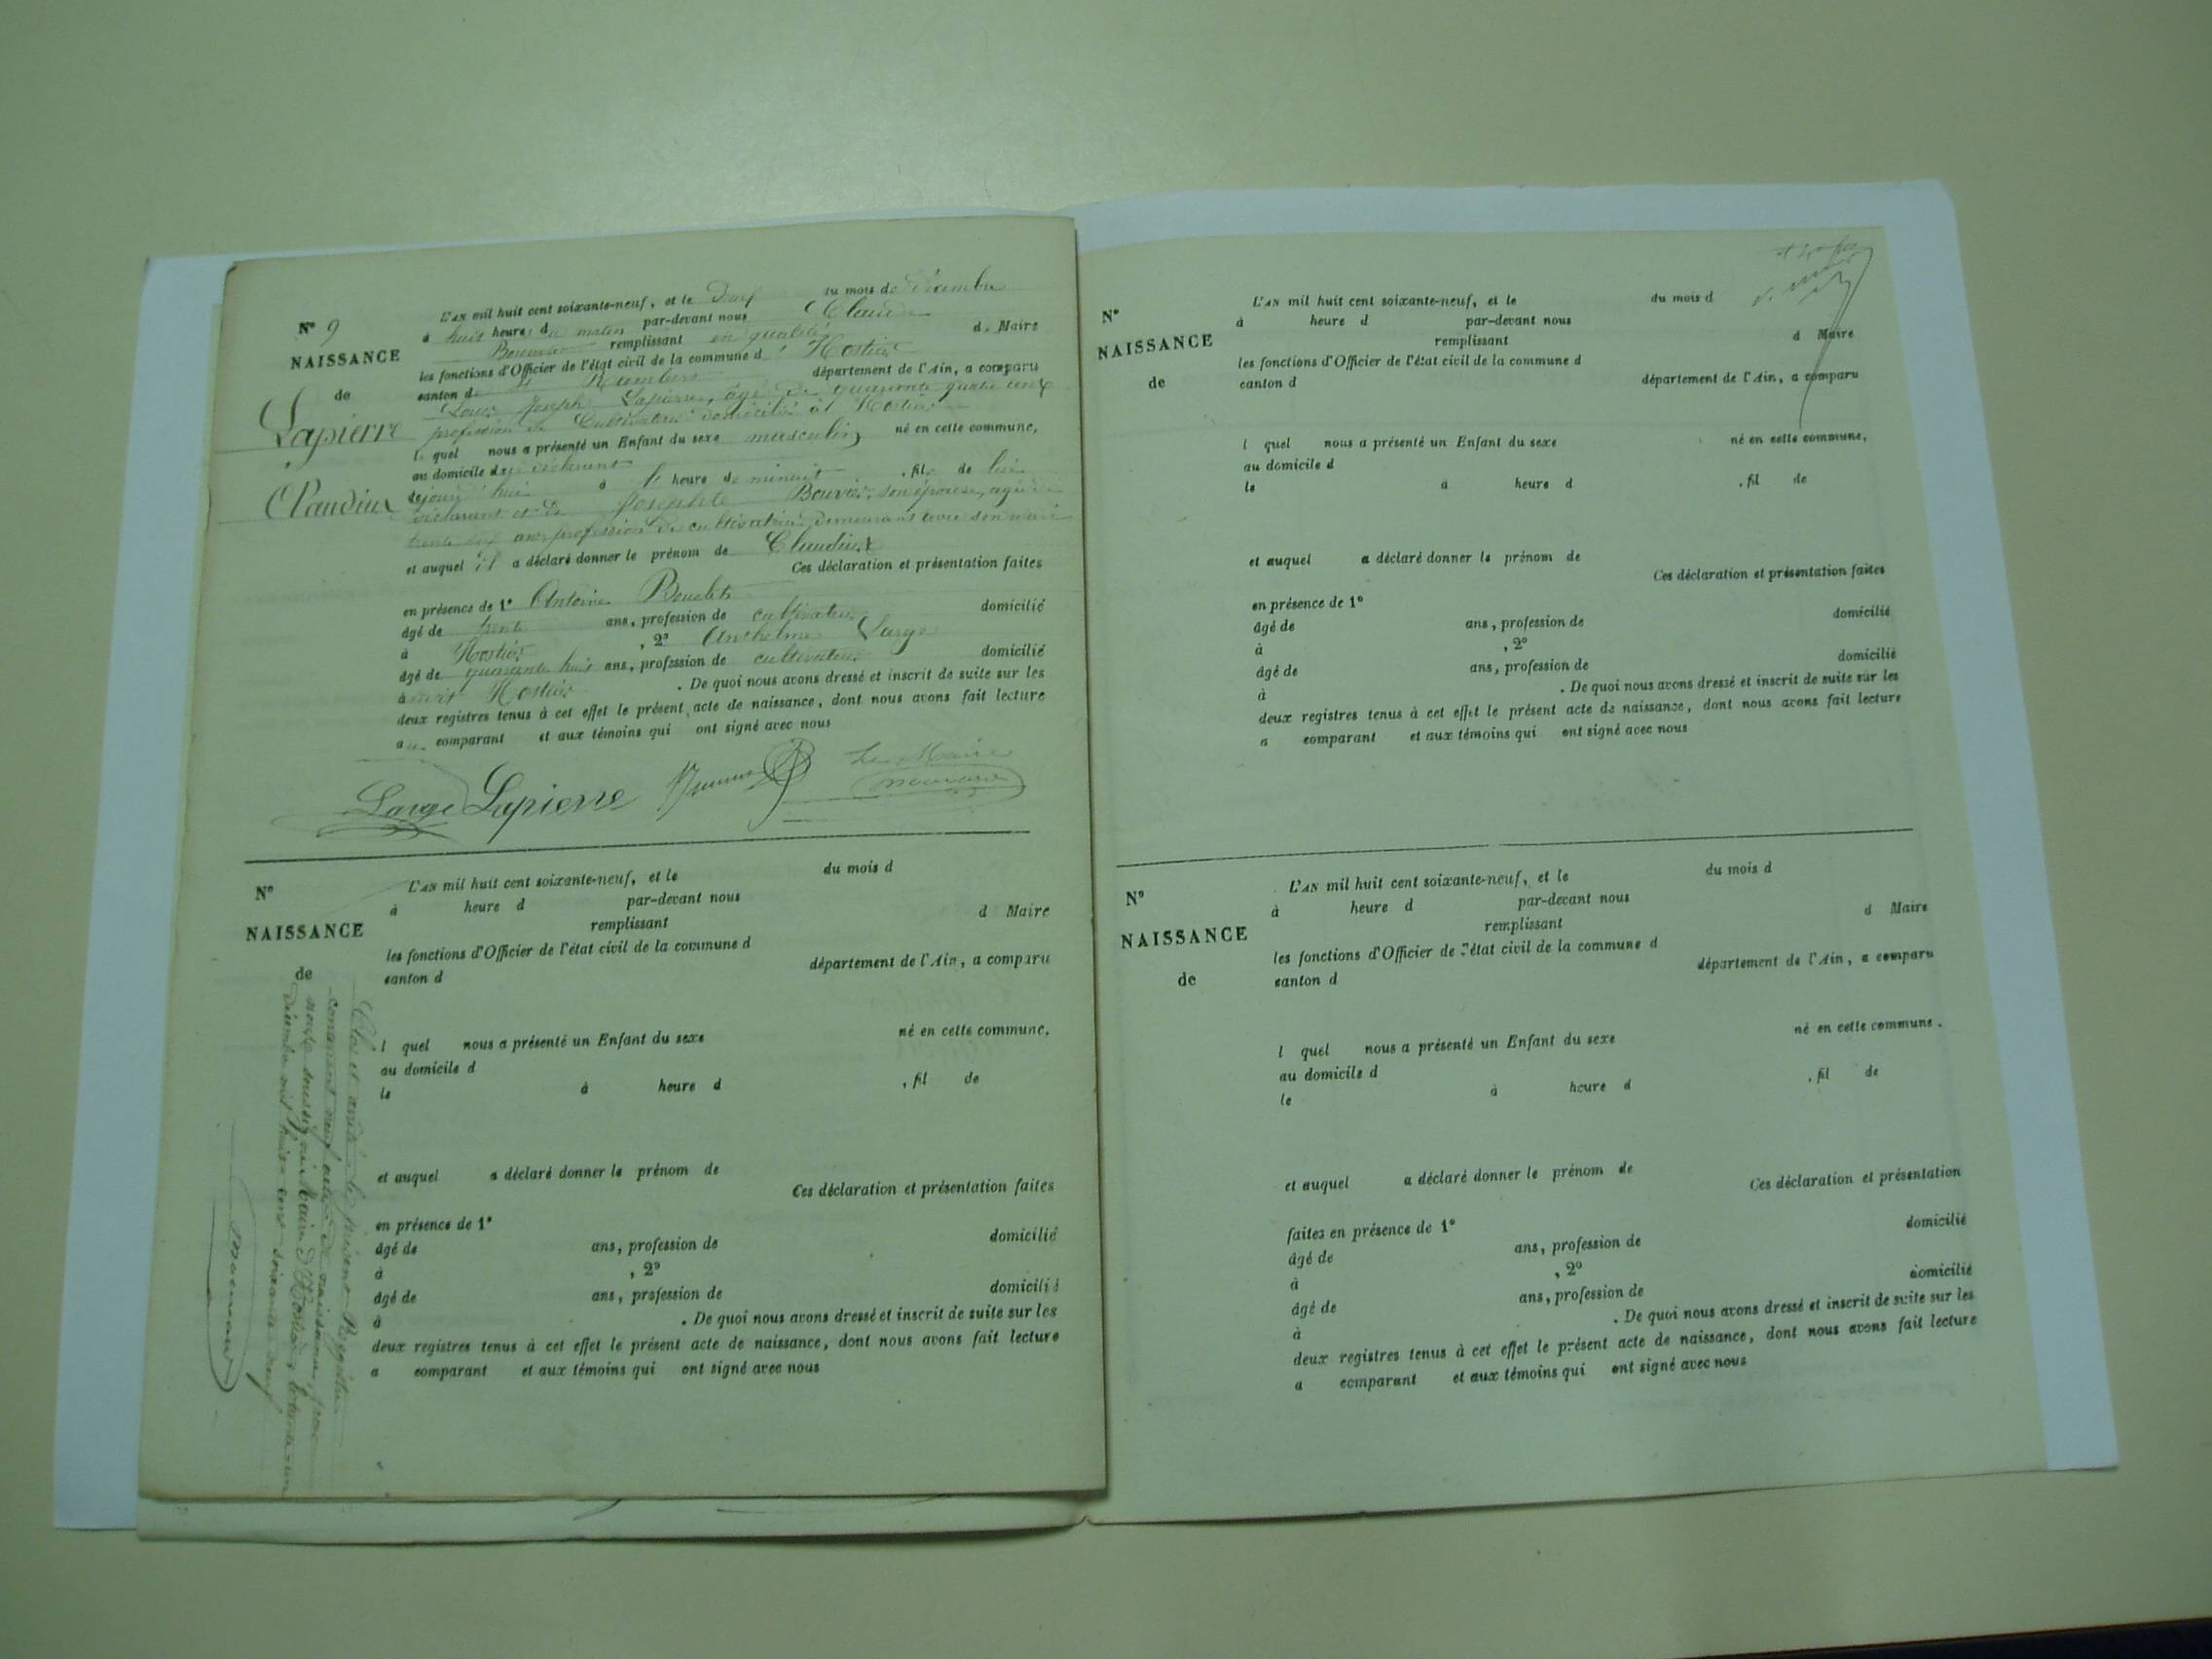 N° 9
NAISSANCE
de
Lapierre
Claudius
L'AN mil huit cent soixante-neuf, et le du mois de décembre
à huit heures du matin par-devant nous Claude
remplissant en qualité d. Maire
les fonctions d'Officier de l'état civil de la commune d'Hostias
canton de St Rambert département de l'Ain, a comparu
Louis Joseph Lapierre, âgé de quarante quatre ans
profession de Cultivateur domicilié à Hostias
le quel nous a présenté un Enfant du sexe masculin né en cette commune,
au domicile du déclarant
à heure de minuit, fils de lui
déclarant et de Josephte Bouvier, son épouse, agée de
trente ans, profession de cultivatrice demeurant avec son mari
et auquel il a déclaré donner le prénom de Claudius
Ces déclaration et présentation faites
en présence de 1° Antoine
âgé de trente ans, profession de cultivateur domicilié
à Hostias, 2° Anthelme Large
âgé de quarante huit ans, profession de cultivateur domicilié
à Hostias. De quoi nous avons dressé et inscrit de suite sur les
deux registres tenus à cet effet le présent acte de naissance, dont nous avons fait lecture
au comparant et aux témoins qui ont signé avec nous
Le Maire
Large Lapierre
N°
NAISSANCE
de
L'AN mil huit cent soixante-neuf, et le du mois d
à heure d par-devant nous
remplissant d Maire
les fonctions d'Officier de l'état civil de la commune d
canton d département de l'Ain, a comparu
l quel nous a présenté un Enfant du sexe né en cette commune.
au domicile d
le à heure d , fil de
et auquel a déclaré donner le prénom de
Ces déclaration et présentation faites
en présence de 1°
âgé de ans, profession de domicilié
à , 2°
âgé de ans, profession de domicilié
à . De quoi nous avons dressé et inscrit de suite sur les
deux registres tenus à cet effet le présent acte de naissance, dont nous avons fait lecture
a comparant et aux témoins qui ont signé avec nous
Clos et arrêté le présent Registre
contenant neuf actes de naissance, par
nous soussigné Maire d'Hostias, le trente-un
décembre mil huit-cent soixante neuf
N°
NAISSANCE
de
L'AN mil huit cent soixante-neuf, et le du mois d
à heure d par-devant nous
remplissant d Maire
les fonctions d'Officier de l'état civil de la commune d
canton d département de l'Ain, a comparu
l quel nous a présenté un Enfant du sexe né en cette commune,
au domicile d
le à heure d , fil de
et auquel a déclaré donner le prénom de
Ces déclaration et présentation faites
en présence de 1°
âgé de ans, profession de domicilié
à , 2°
âgé de ans, profession de domicilié
à . De quoi nous avons dressé et inscrit de suite sur les
deux registres tenus à cet effet le présent acte de naissance, dont nous avons fait lecture
a comparant et aux témoins qui ont signé avec nous
N°
NAISSANCE
de
L'AN mil huit cent soixante-neuf, et le du mois d
à heure d par-devant nous
remplissant d Maire
les fonctions d'Officier de l'état civil de la commune d
canton d département de l'Ain, a comparu
l quel nous a présenté un Enfant du sexe né en cette commune.
au domicile d
le à heure d , fil de
et auquel a déclaré donner le prénom de
Ces déclaration et présentation
faites en présence de 1°
âgé de ans, profession de domicilié
à , 2°
âgé de ans, profession de domicilié
à . De quoi nous avons dressé et inscrit de suite sur les
deux registres tenus à cet effet le présent acte de naissance, dont nous avons fait lecture
a comparant et aux témoins qui ont signé avec nous